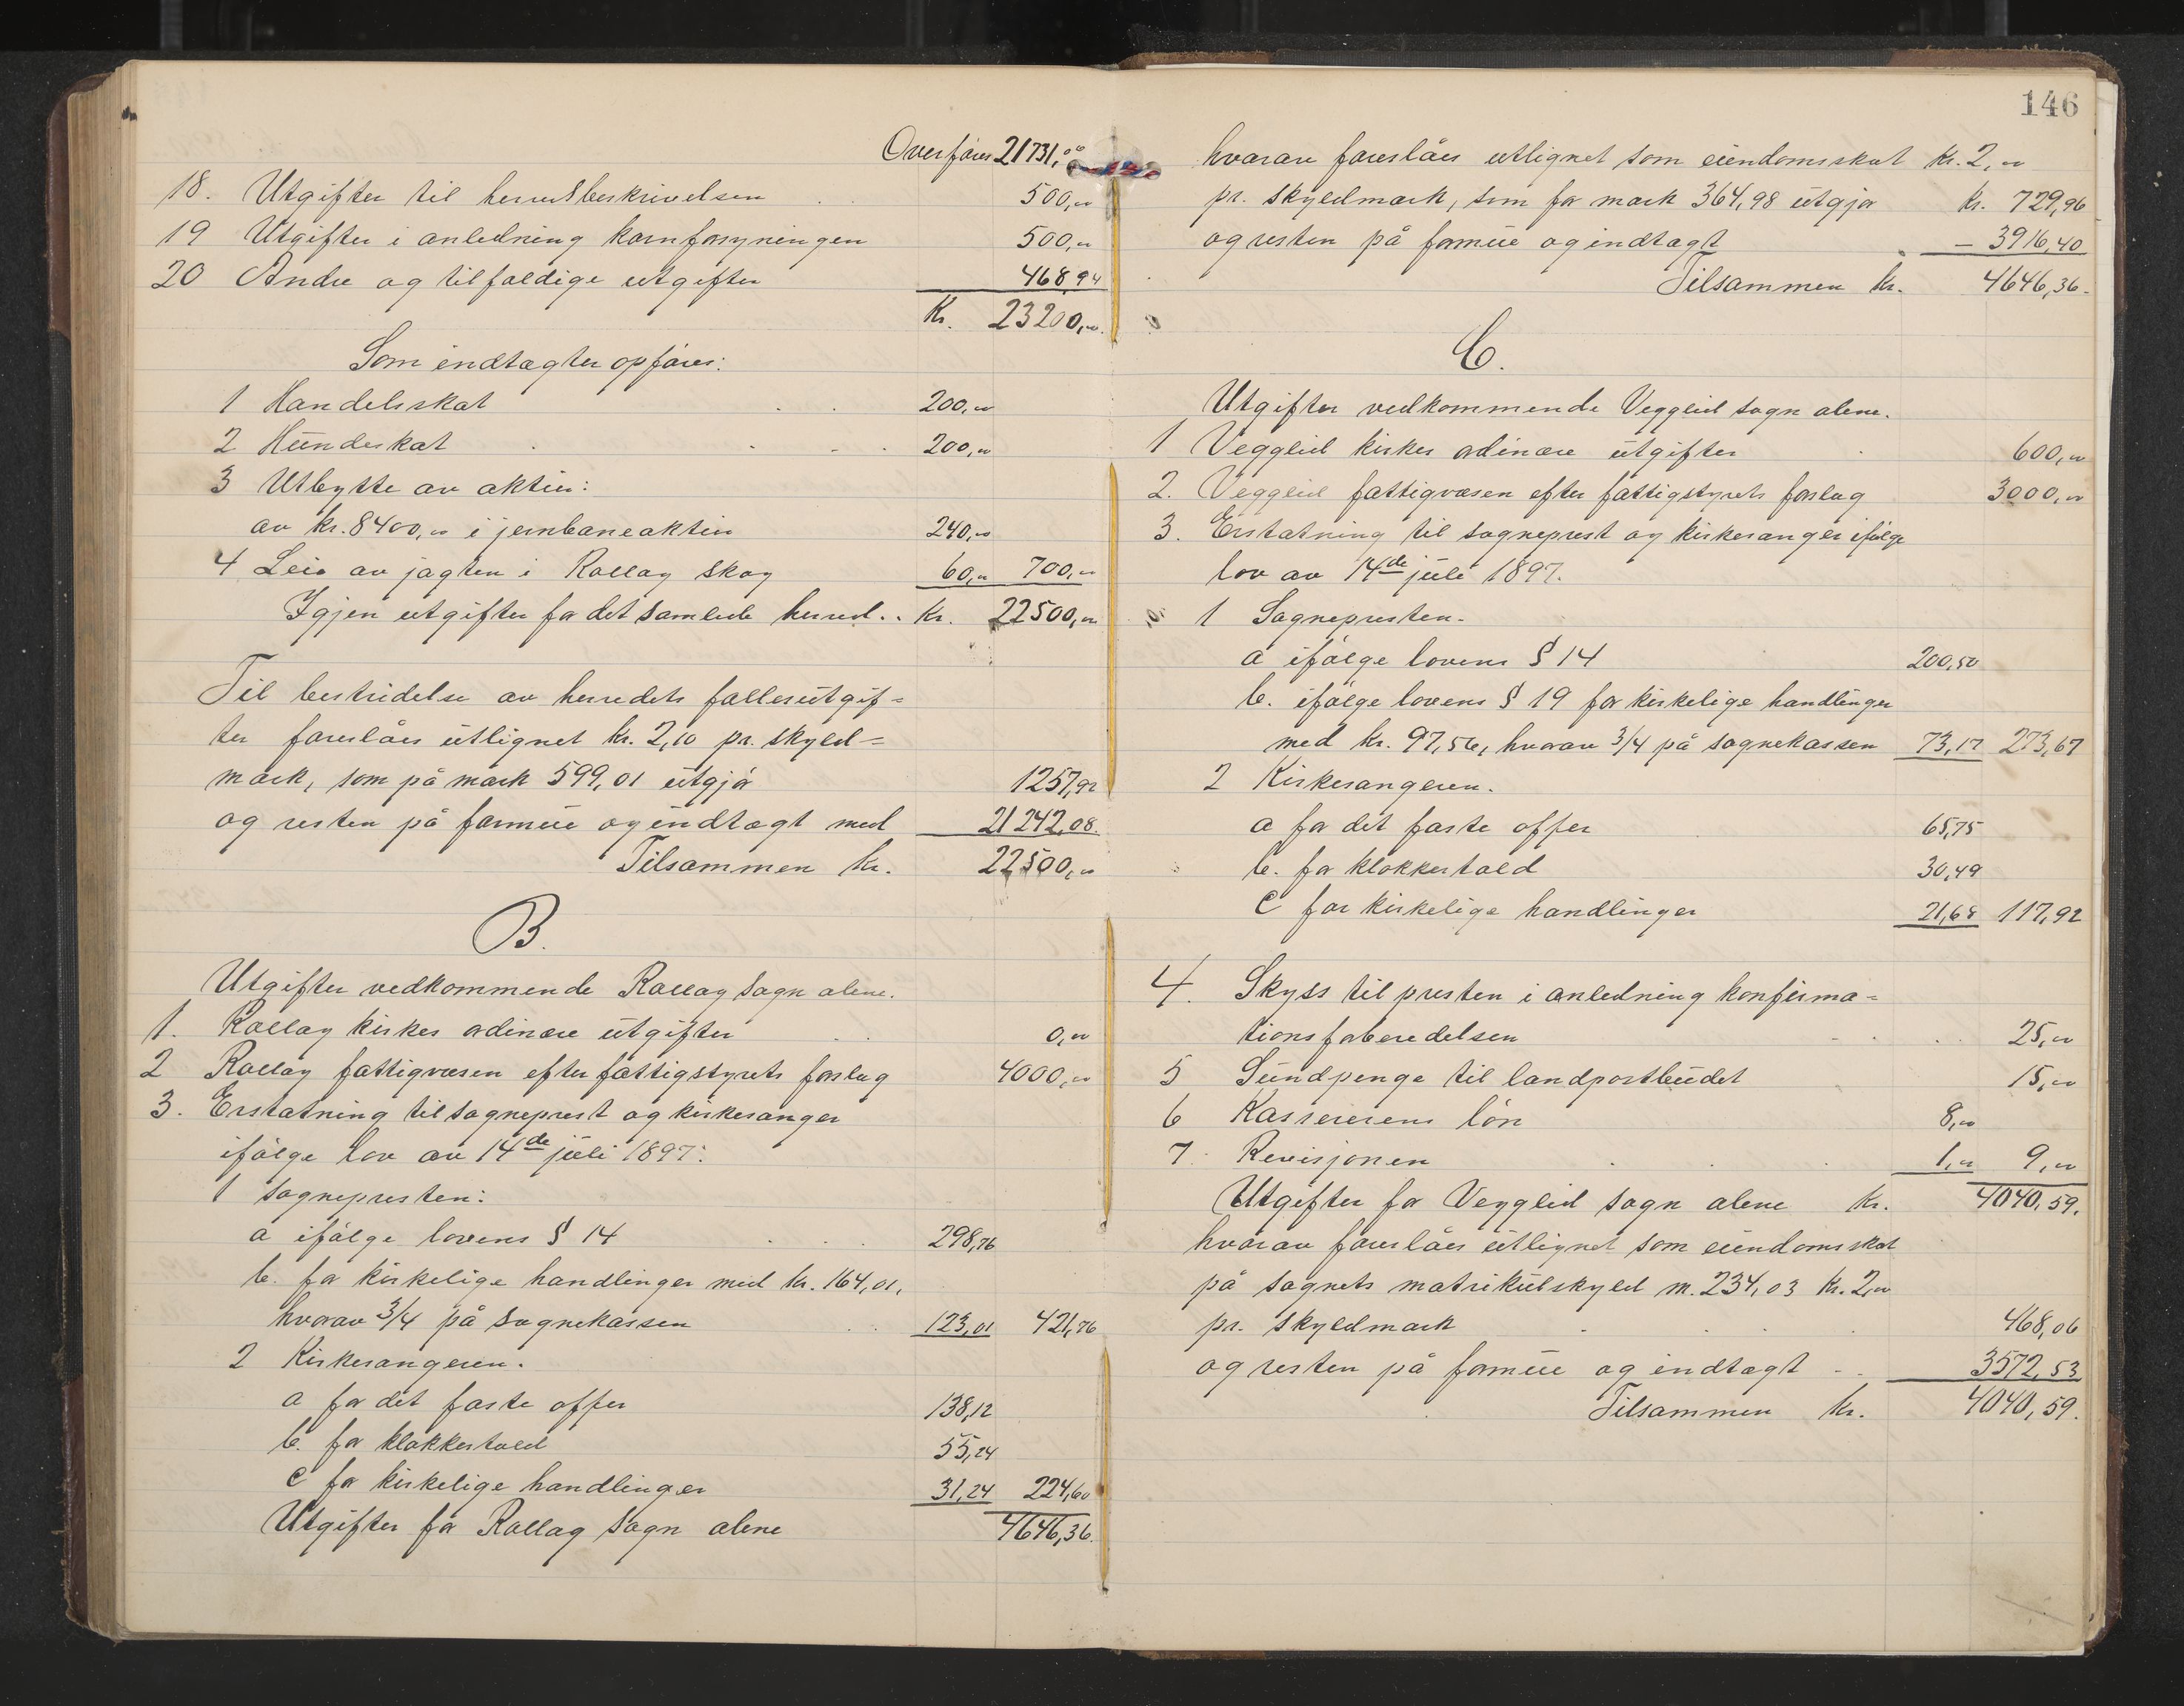 Overføres 21731,06
18. Utgifter til herredsbeskrivelsen 500,00
19 Utgifter i anledning kornforsyningen 500,00
20 Andre og tilfældige utgifter 468,94
Kr. 23200,00
Som indtægter opføres:
1 Handelsskat 200,00
2 Hundeskat 200,00
3 Utbytte av aktier:
av kr. 8400,00 i jernbaneaktier 240,00
4 Leie av jagten i Rollag skog 60,00 700,00
Igjen utgifter for det samlede herred. Kr. 22500,00
Til bestridelse av herredets fællesutgif=
ter foreslåes utlignet kr. 2,10 pr. skyld=
mark, som på mark 599,01 utgjør 1257,92
og resten på formue og indtægt med 21242,08.
Tilsammen kr. 22500,00
B.
Utgifter vedkommende Rollag sogn alene.
1. Rollag kirkes ordinære utgifter 0,00
2 Rollag fattigvæsen efter fattigstyrets forslag 4000,00
3. Erstatning til sogneprest og kirkesanger
ifølge lov av 14de juli 1897:
1 Sognepresten:
a ifølge lovens § 14 298,76
b. for kirkelige handlinger med kr. 164,01,
hvorav 3/4 på sognekassen 123,01 421,76
2 Kirkesangeren.
a for det faste offer 138,12
b. for klokkertold 55,24
c for kirkelige handlinger 31,24 224,60
Utgifter for Rollag sogn alene 4646,36.
146
hvorav foreslåes utlignet som eiendomsskat kr. 2,00
pr. skyldmark, som for mark 364,98 utgjør Kr. 729,96
og resten på formue og indtægt – 3916,40
Tilsammen kr. 4646,36.
C.
Utgifter vedkommende Vegglid sogn alene.
1 Vegglid kirkes ordinære utgifter 600,00
2. Vegglid fattigvæsen efter fattigstyrets forslag 3000,00
3. Erstatning til sogneprest og kirkesanger ifølge
lov av 14de juli 1897.
1 Sognepresten.
a ifølge lovens § 14 200,50
b. ifølge lovens § 19 for kirkelige handlinger
med kr. 97,56, hvorav 3/4 på sognekassen 73,17 273,67
2 Kirkesangeren.
a for det faste offer 65,75
b. for klokkertold 30,49
c for kirkelige handlinger 21,68 117,92
4. Skyss til presten i anledning konfirma=
tionsforberedelsen 25,00
5 Sundpenge til landpostbudet 15,00
6 Kassererens løn 8,00
7. Revisjonen 1,00 9,00
Utgifter for Vegglid sogn alene kr. 4040,59.
hvorav foreslåes utlignet som eiendomsskat
på sognets matrikulskyld m. 234,03 Kr. 2,00
pr. skyldmark 468,06
og resten på formue og indtægt 3572,53
Tilsammen kr. 4040,59.